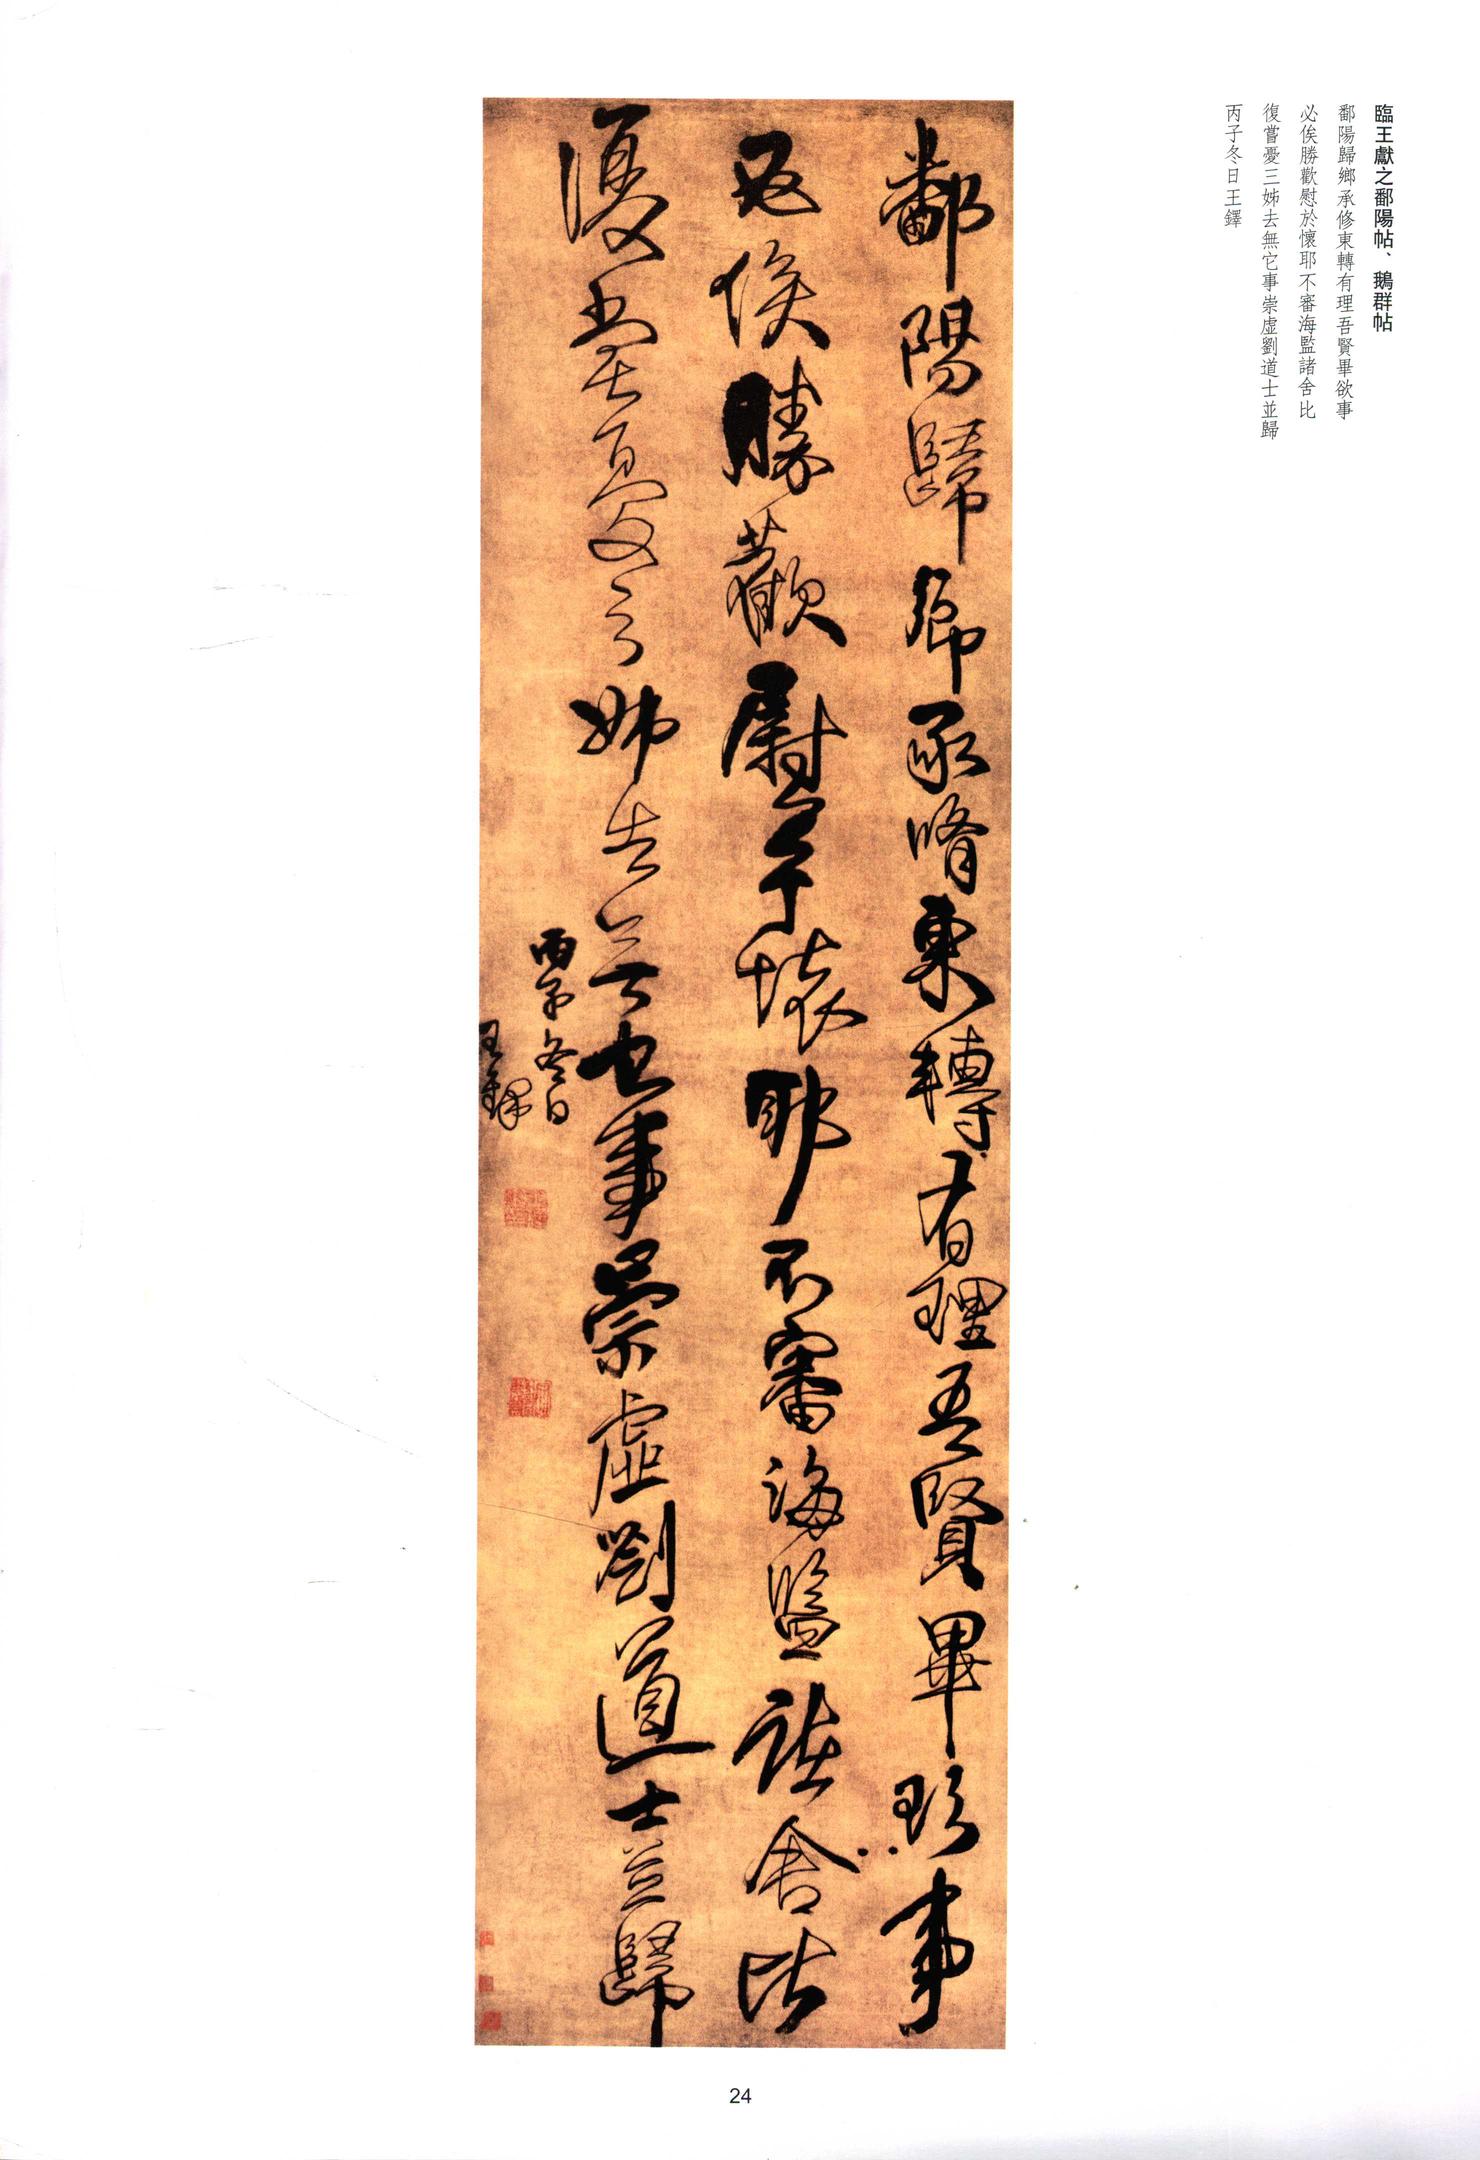 臨王獻之鄱陽帖、鵝群帖
鄱陽歸鄉承修東轉有理吾賢畢欲事
必俟勝歡慰於懷耶不審海監諸舍比
復嘗憂三姊去無它事崇虛劉道士並歸
丙子冬日王鐸
鄱陽歸鄉承脩東轉有理吾賢畢欲事
必俟勝歡慰於懷耶不審海監諸舍比
復嘗憂三姊去無它事崇虛劉道士並歸
丙子冬日
王鐸
24